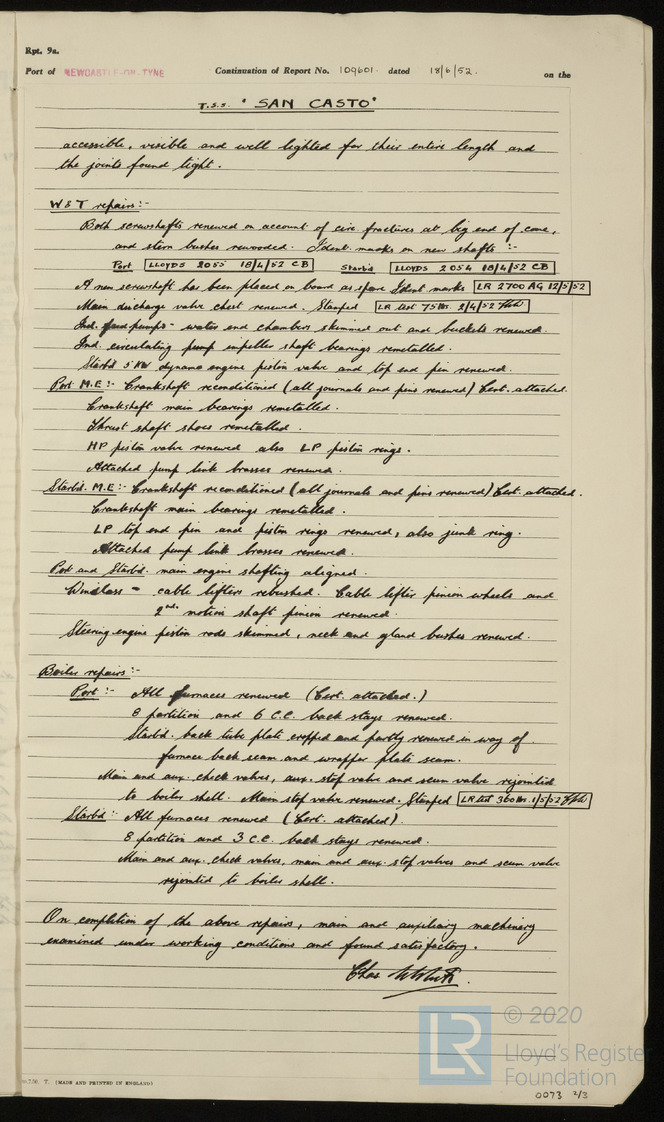 Rpt. 9a.
Port of NEWCASTLE-ON-TYNE Continuation of Report No. 109601. dated 18/6/52. on the
T.S.S. "SAN CASTO"
accessible, visible and well lighted for their entire length and
the joints found tight.
W & T repairs:-
Both screwshafts renewed on account of circ. fractures at big end of cone,
and stern bushes rewooded. Ident. marks on new shafts :-
Port LLOYDS 2055 18/4/52 CB Starb'd LLOYDS 2054 18/4/52 CB
A new screwshaft has been placed on board as spare Ident marks LR 2700 AG 12/5/52
Main discharge valve chest renewed. Stamped LR test 75 lbs. 2/4/52
Ind. feed pumps - water end chambers skimmed out and buckets renewed.
Ind. circulating pump impeller shaft bearings remetalled.
Starb'd 5 KW dynamo engine piston valve and top end pin renewed.
Port M.E:- Crankshaft reconditioned (all journals and pins renewed) Cert. attached.
Crankshaft main bearings remetalled.
Thrust shaft shoes remetalled.
HP piston valve renewed also LP piston rings.
Attached pump link brasses renewed.
Starb'd. M.E:- Crankshaft reconditioned (all journals and pins renewed) Cert. attached.
Crankshaft main bearings remetalled.
LP top end pin and piston rings renewed, also junk ring.
Attached pump link brasses renewed.
Port and Starb'd. main engine shafting aligned.
Windlass - cable lifters rebushed. Cable lifter pinion wheels and
2nd. motion shaft pinion renewed.
Steering engine piston rods skimmed, neck and gland bushes renewed.
Boiler repairs:-
Port:- All furnaces renewed (Cert. attached.)
8 partition and 6 C.C. back stays renewed.
Starb'd. back tube plate cropped and partly renewed in way of
furnace back seam and wrapper plate seam.
Main and aux. check valves, aux. stop valve and scum valve rejointed
to boiler shell. Main stop valve renewed. Stamped LR test 360 lbs. 1/5/52
Starb'd:- All furnaces renewed (Cert. attached).
8 partition and 3 C.C. back stays renewed.
Main and aux. check valves, main and aux. stop valves and scum valve
rejointed to boiler shell.
On completion of the above repairs, main and auxiliary machinery
examined under working conditions and found satisfactory.
Chas
T. (MADE AND PRINTED IN ENGLAND)
LR © 2020
Lloyd's Register
Foundation
0073 2/3